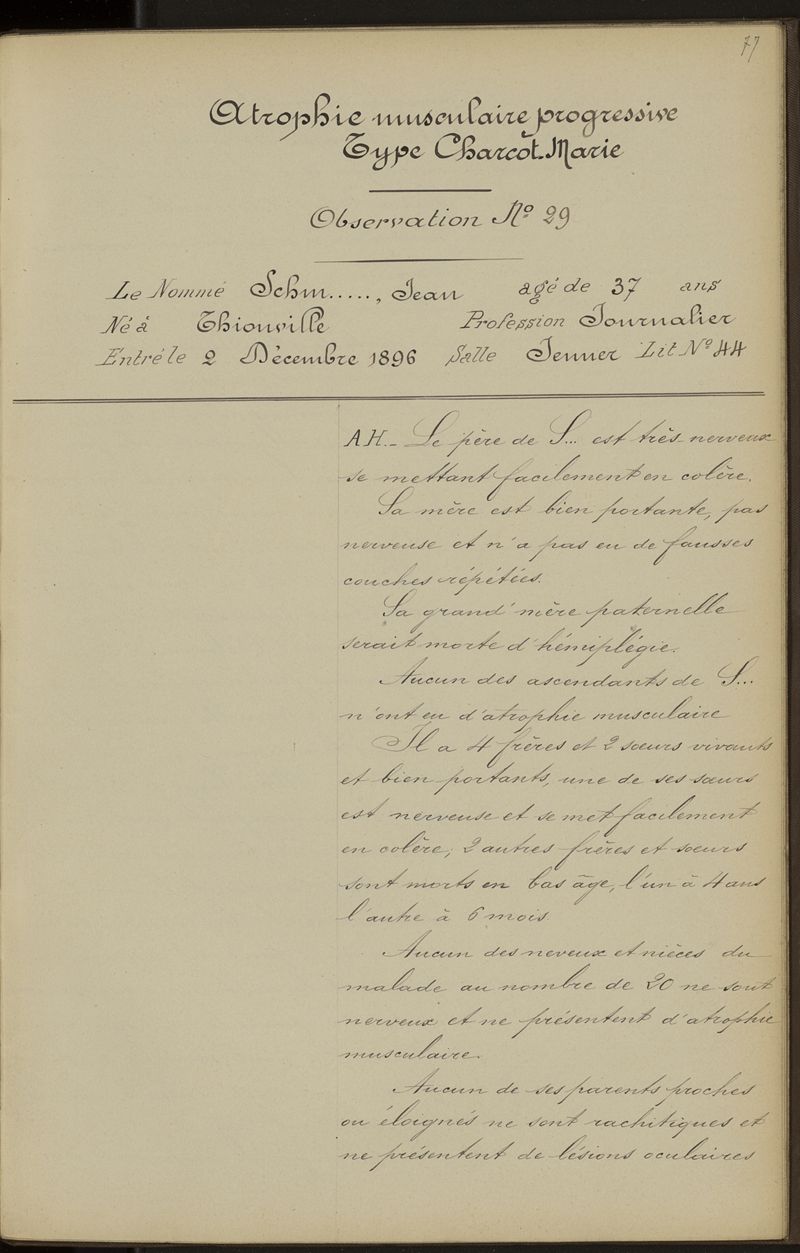 77
Atrophie musculaire progressive
Type Charcot-Marie
Observation No 29
Le Nommé Schm....., Jean agé de 37 ans
Né à Thionville Profession Journalier
Entré le 2 Décembre 1896 Salle Jenner Lit No 44
A H._ Le père de S... est très nerveux
se mettant facilement en colère.
Sa mère est bien portante, pas
nerveuse et n'a pas eu de fausses
couches répétées.
Sa grand'mère paternelle
serait morte d'hémiplégie.
Aucun des ascendants de S...
n'ont eu d'atrophie musculaire
Il a 4 frères et 2 sœurs vivants
et bien portants, une de ses sœurs
est nerveuse et se met facilement
en colère; 2 autres frères et sœurs
sont morts en bas âge, l'un à 4 ans
l'autre à 6 mois
Aucun des neveux et nièces du
malade au nombre de 20 ne sont
nerveux et ne présentent d'atrophie
musculaire.
Aucun de ses parents proches
ou éloignés ne sont rachitiques et
ne présentent de lésions oculaires